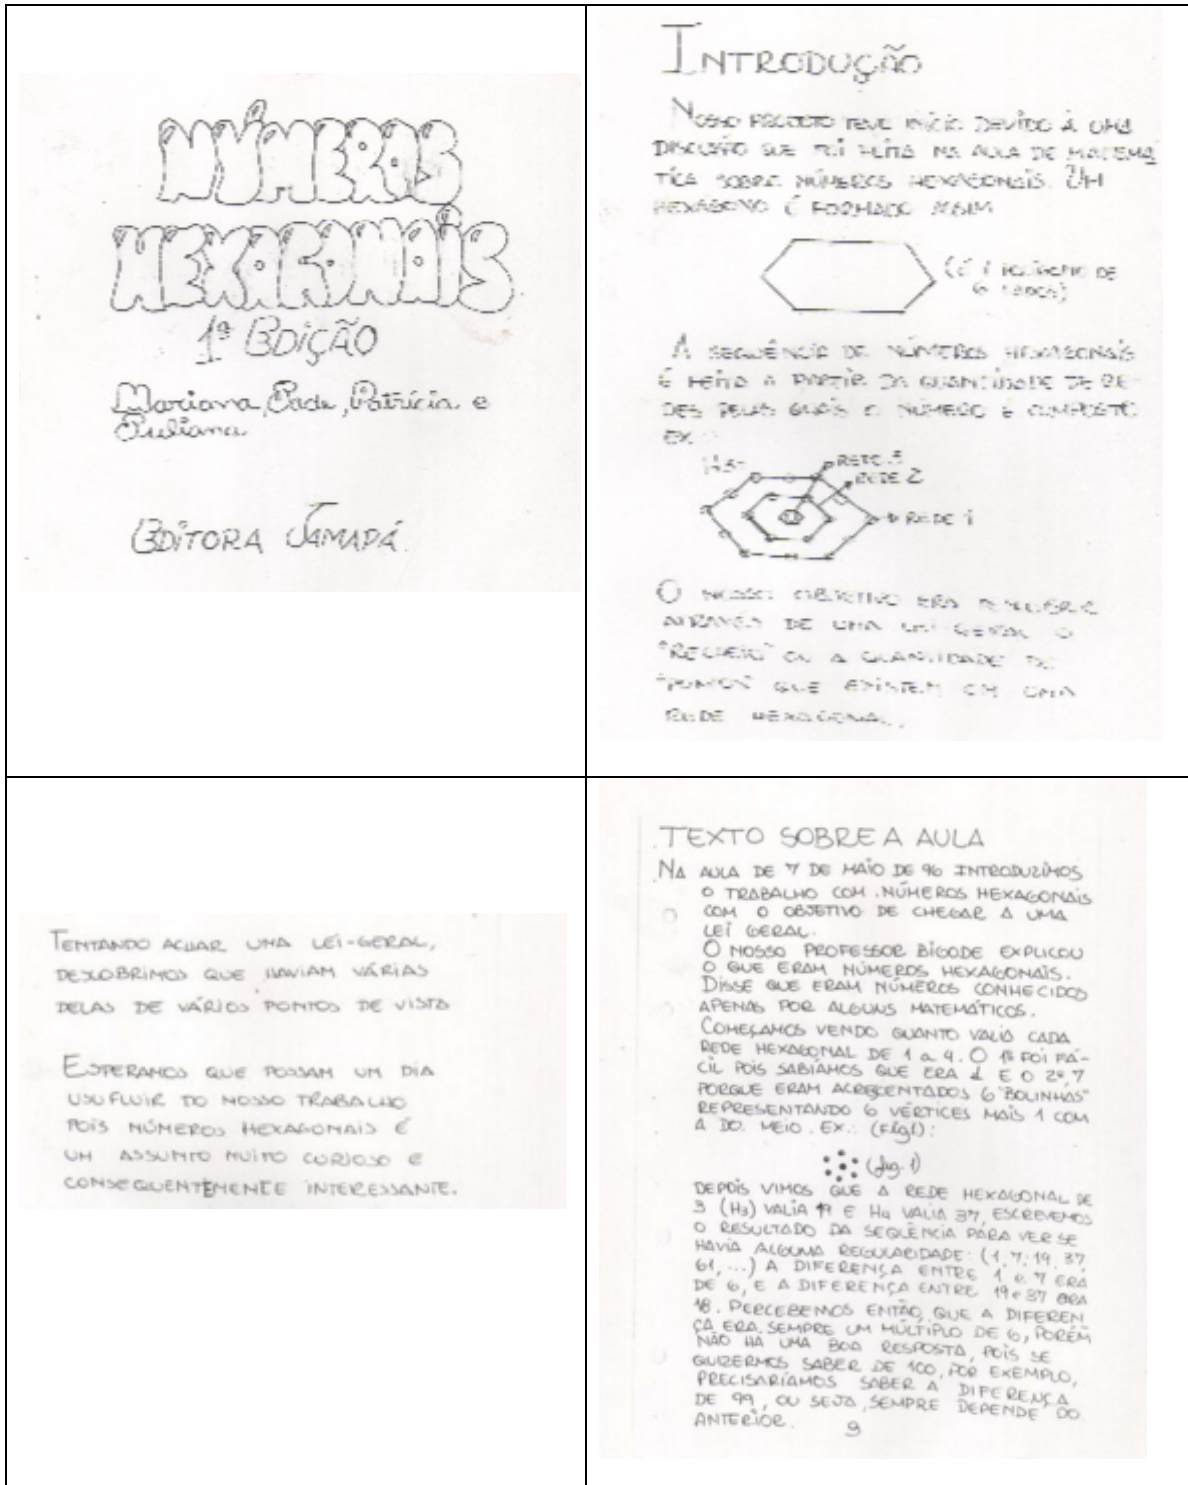 NÚMEROS
HEXAGONAIS
1ª EDIÇÃO
Mariana, Patrícia e
Juliana.
EDITORA JAMAPÁ.
INTRODUÇÃO
NOSSO PROJETO TEVE INÍCIO DEVIDO À UMA
DISCUSSÃO QUE FOI FEITA NA AULA DE MATEMÁ
TICA SOBRE NÚMEROS HEXAGONAIS. UM
HEXÁGONO É FORMADO ASSIM
(É 1 POLÍGONO DE
6 LADOS)
A SEQUÊNCIA DE NÚMEROS HEXAGONAIS
É FEITA A PARTIR DA QUANTIDADE DE RE-
DES PELAS QUAIS O NÚMERO É COMPOSTO
EX.:
REDE 3
REDE 2
REDE 1
O NOSSO OBJETIVO ERA DESCOBRIR
ATRAVÉS DE UMA LEI GERAL O
"RECHEIO" OU A QUANTIDADE DE
"PONTOS" QUE EXISTEM EM UMA
REDE HEXAGONAL.
TENTANDO ACHAR UMA LEI-GERAL,
DESCOBRIMOS QUE HAVIAM VÁRIAS
DELAS DE VÁRIOS PONTOS DE VISTA
ESPERAMOS QUE POSSAM UM DIA
USUFLUIR DO NOSSO TRABALHO
POIS NÚMEROS HEXAGONAIS É
UM ASSUNTO MUITO CURIOSO E
CONSEQUENTEMENTE INTERESSANTE.
TEXTO SOBRE A AULA
NA AULA DE 7 DE MAIO DE 96 INTRODUZIMOS
O TRABALHO COM NÚMEROS HEXAGONAIS
COM O OBJETIVO DE CHEGAR A UMA
LEI GERAL.
O NOSSO PROFESSOR BIGODE EXPLICOU
O QUE ERAM NÚMEROS HEXAGONAIS.
DISSE QUE ERAM NÚMEROS CONHECIDOS
APENAS POR ALGUNS MATEMÁTICOS.
COMEÇAMOS VENDO QUANTO VALIA CADA
REDE HEXAGONAL DE 1 a 4. O 1º FOI FÁ-
CIL POIS SABÍAMOS QUE ERA 1 E O 2º, 7
PORQUE ERAM ACRESCENTADOS 6 "BOLINHAS"
REPRESENTANDO 6 VÉRTICES MAIS 1 COM
A DO MEIO. EX.: (Fig1):
(fig. 1)
DEPOIS VIMOS QUE A REDE HEXAGONAL DE
3 (H3) VALIA 19 E H4 VALIA 37, ESCREVEMOS
O RESULTADO DA SEQÜÊNCIA PARA VER SE
HAVIA ALGUMA REGULARIDADE: (1, 7, 19, 37
61, ...) A DIFERENÇA ENTRE 1 e 7 ERA
DE 6, E A DIFERENÇA ENTRE 19 e 37 ERA
18. PERCEBEMOS ENTÃO, QUE A DIFEREN
ÇA ERA SEMPRE UM MÚLTIPLO DE 6, PORÉM
NÃO HÁ UMA BOA RESPOSTA, POIS SE
QUIZERMOS SABER DE 100, POR EXEMPLO,
PRECISARÍAMOS SABER A DIFERENÇA
DE 99, OU SEJA, SEMPRE DEPENDE DO
ANTERIOR. 9